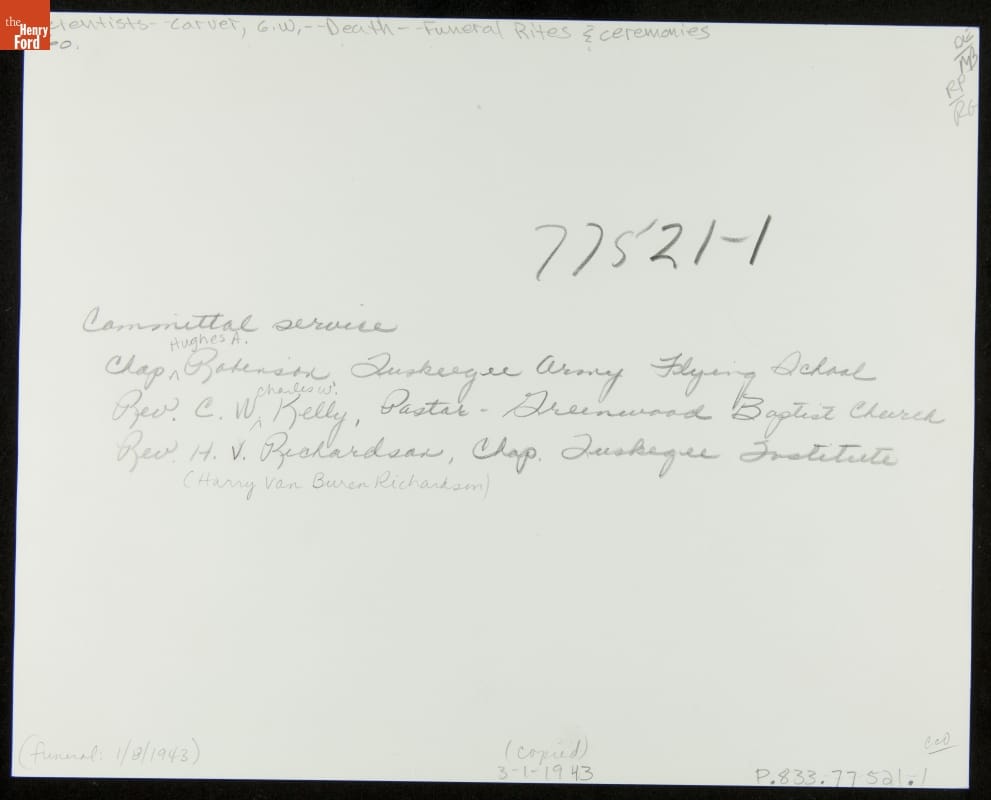 the
Henry
Ford
cientists- Carver, G.W,--Death--Funeral Rites & ceremonies
o.
DE/MB
RP/RG
77521-1
Committal service
Hughes A.
Chap ^ Robinson Tuskeegee Army Flying School
Charles W.
Rev. C. W ^ Kelly, Pastor - Greenwood Baptist Church
Rev. H. V. Richardson, Chap. Tuskegee Institute
(Harry Van Buren Richardson)
(funeral: 1/8/1943)
(copied)
3-1-1943
P.833.77521.1